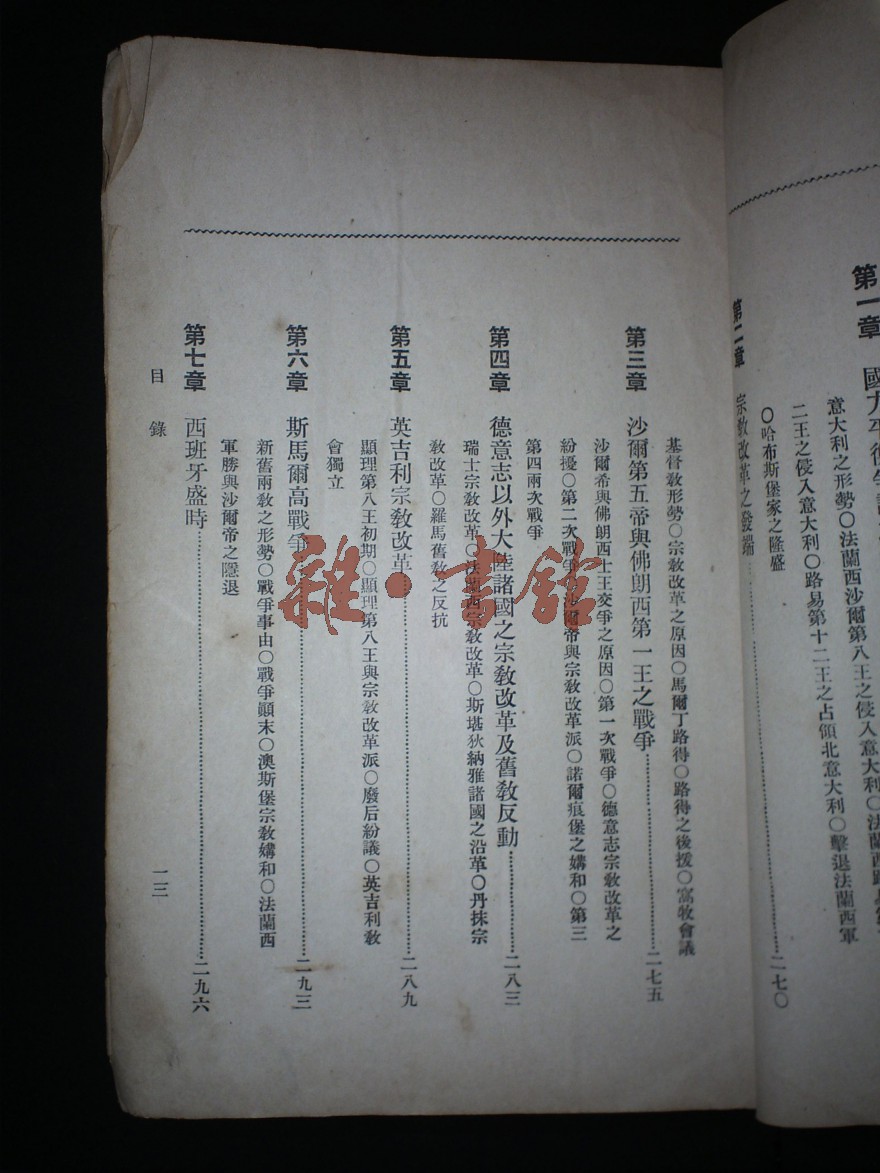 第一章
意大利之形勢○法蘭西沙爾第八王之侵入意大利○法蘭西路易第
二王之侵入意大利○路易第十二王之占領北意大利○擊退法蘭西軍
○哈布斯堡家之隆盛
第二章 宗敎改革之發端……二七〇
基督敎形勢○宗敎改革之原因○馬爾丁路得○路得之後援○窩牧會議
第三章 沙爾第五帝與佛朗西第一王之戰爭……二七五
沙爾希與佛朗西士王交爭之原因○第一次戰爭○德意志宗敎改革之
紛擾○第二次戰爭○沙爾帝與宗敎改革派○諾爾痕堡之媾和○第三
第四兩次戰爭
第四章 德意志以外大陸諸國之宗敎改革及舊敎反動……二八三
瑞士宗敎改革○法蘭西宗敎改革○斯堪狄納雅諸國之沿革○丹抹宗
敎改革○羅馬舊敎之反抗
第五章 英吉利宗敎改革……二八九
顯理第八王初期○顯理第八王與宗敎改革派○廢后紛議○英吉利敎
會獨立
第六章 斯馬爾高戰爭……二九三
新舊兩敎之形勢○戰爭事由○戰爭顚末○澳斯堡宗敎媾和○法蘭西
軍勝與沙爾帝之隱退
第七章 西班牙盛時……二九六
目錄 一三
雜·書館